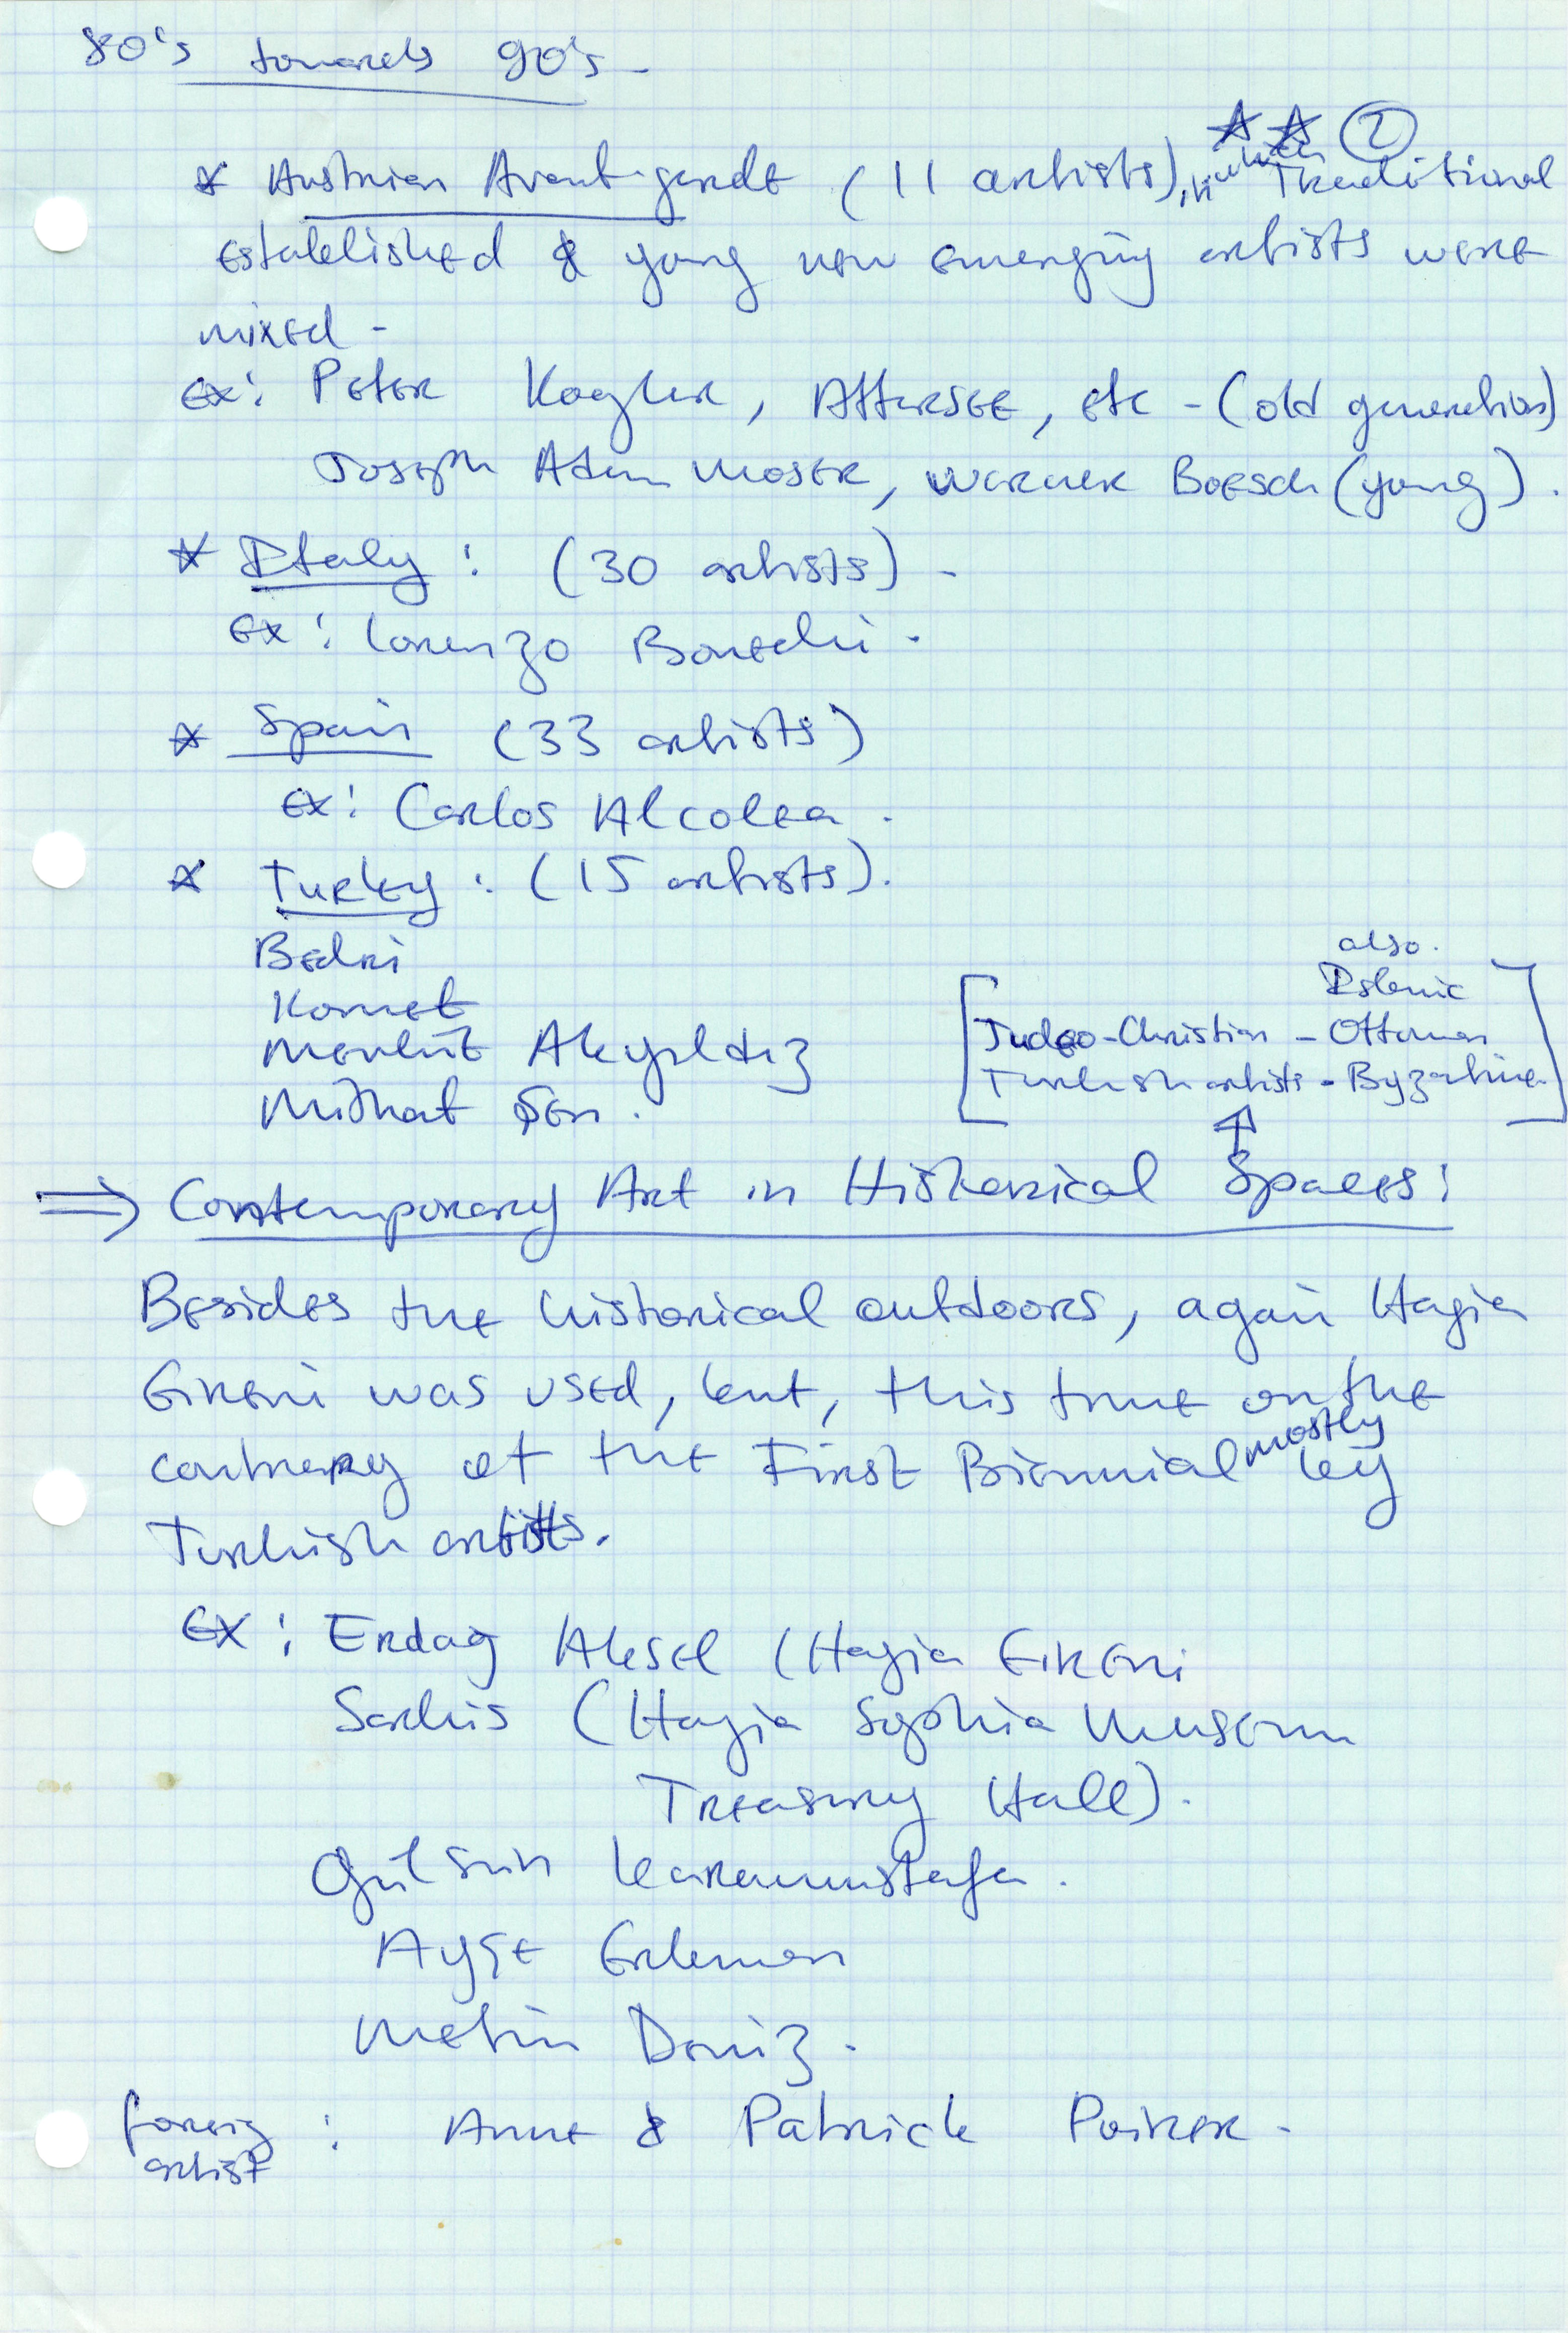 80's towards 90's -
☆ ☆ ②
* Austrian Avant-garde (11 artists), in which Traditional
Established & yong new emerging artists were
mixed -
Ex: Peter Kogler, Attersee, etc - (old generation)
Joseph Adam Moser, Werner Boesch (yong).
* Italy : (30 artists) -
Ex: Lorenzo Bonechi.
* Spain (33 artists)
Ex: Carlos Alcolea.
* Turkey : (15 artists).
Bedri
Komet
Mevlüt Akyıldız
Mithat Şen.
also.
Islamic
[Judeo-Christian - Ottoman
Turkish artists - Byzantine]
↑
⇒ Contemporary Art in Historical Spaces:
Besides the historical outdoors, again Hagia
Eireni was used, but, this time on the
contrary of the First Biennial mostly by
Turkish artists.
Ex: Erdag Aksel (Hagia Eireni
Sarkis (Hagia Sophia Museum
Treasury Hall).
Gülsün Karamustafa.
Ayşe Erkmen
Metin Deniz.
foreig : Anne & Patrick Poirer -
artist